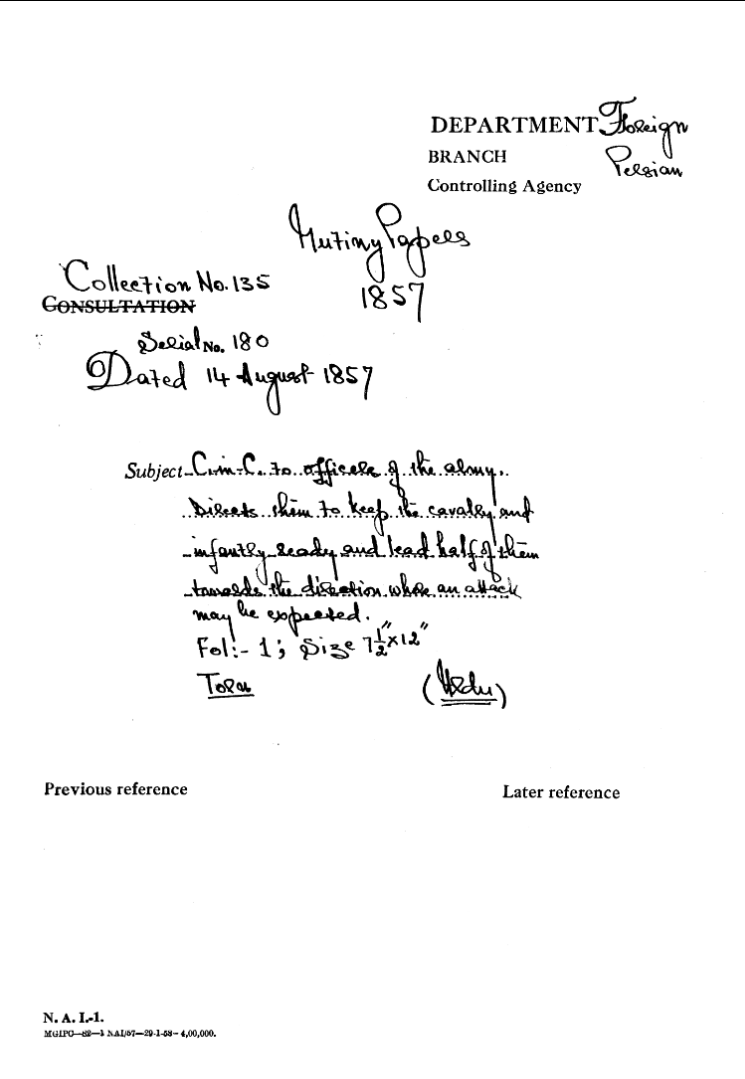 DEPARTMENT Foreign
BRANCH Persian
Controlling Agency
Mutiny Papers
1857
Collection No. 135
CONSULTATION
Serial No. 180
Dated 14 August 1857
Subject C-in-C. to officers of the army.
Directs them to keep the cavalry and
infantry ready and lead half of them
towards the direction where an attack
may be expected.
Fol:- 1; Size 7½"x12"
Torn (Urdu)
Previous reference Later reference
N. A. I.-1.
MGIPC—82—1 NAI/57—29-1-58— 4,00,000.